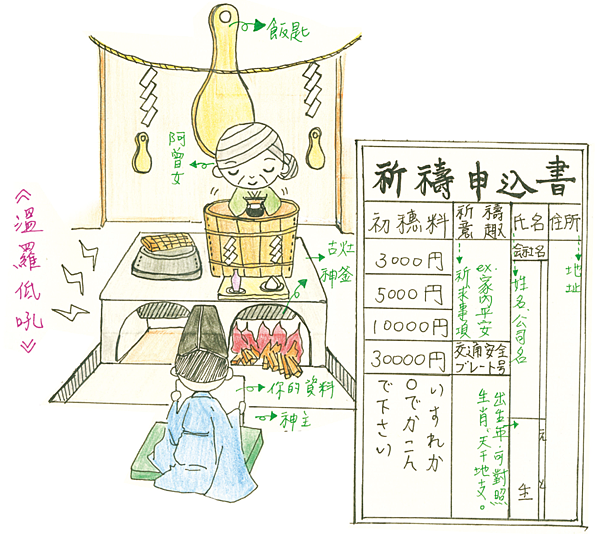 飯匙
阿曾女
《溫羅低吼》
古灶
神釜
你的資料
神主
祈禱申込書
初穗料
3000円
5000円
10000円
30000円
いずれか
○でかこん
で下さい
祈禱
意趣
ex.家內平安
祈求事項
交通安全
プレート号
出生年,可對照
生肖、天干地支。
氏名
会社名
姓名、公司名
生
住所
地址